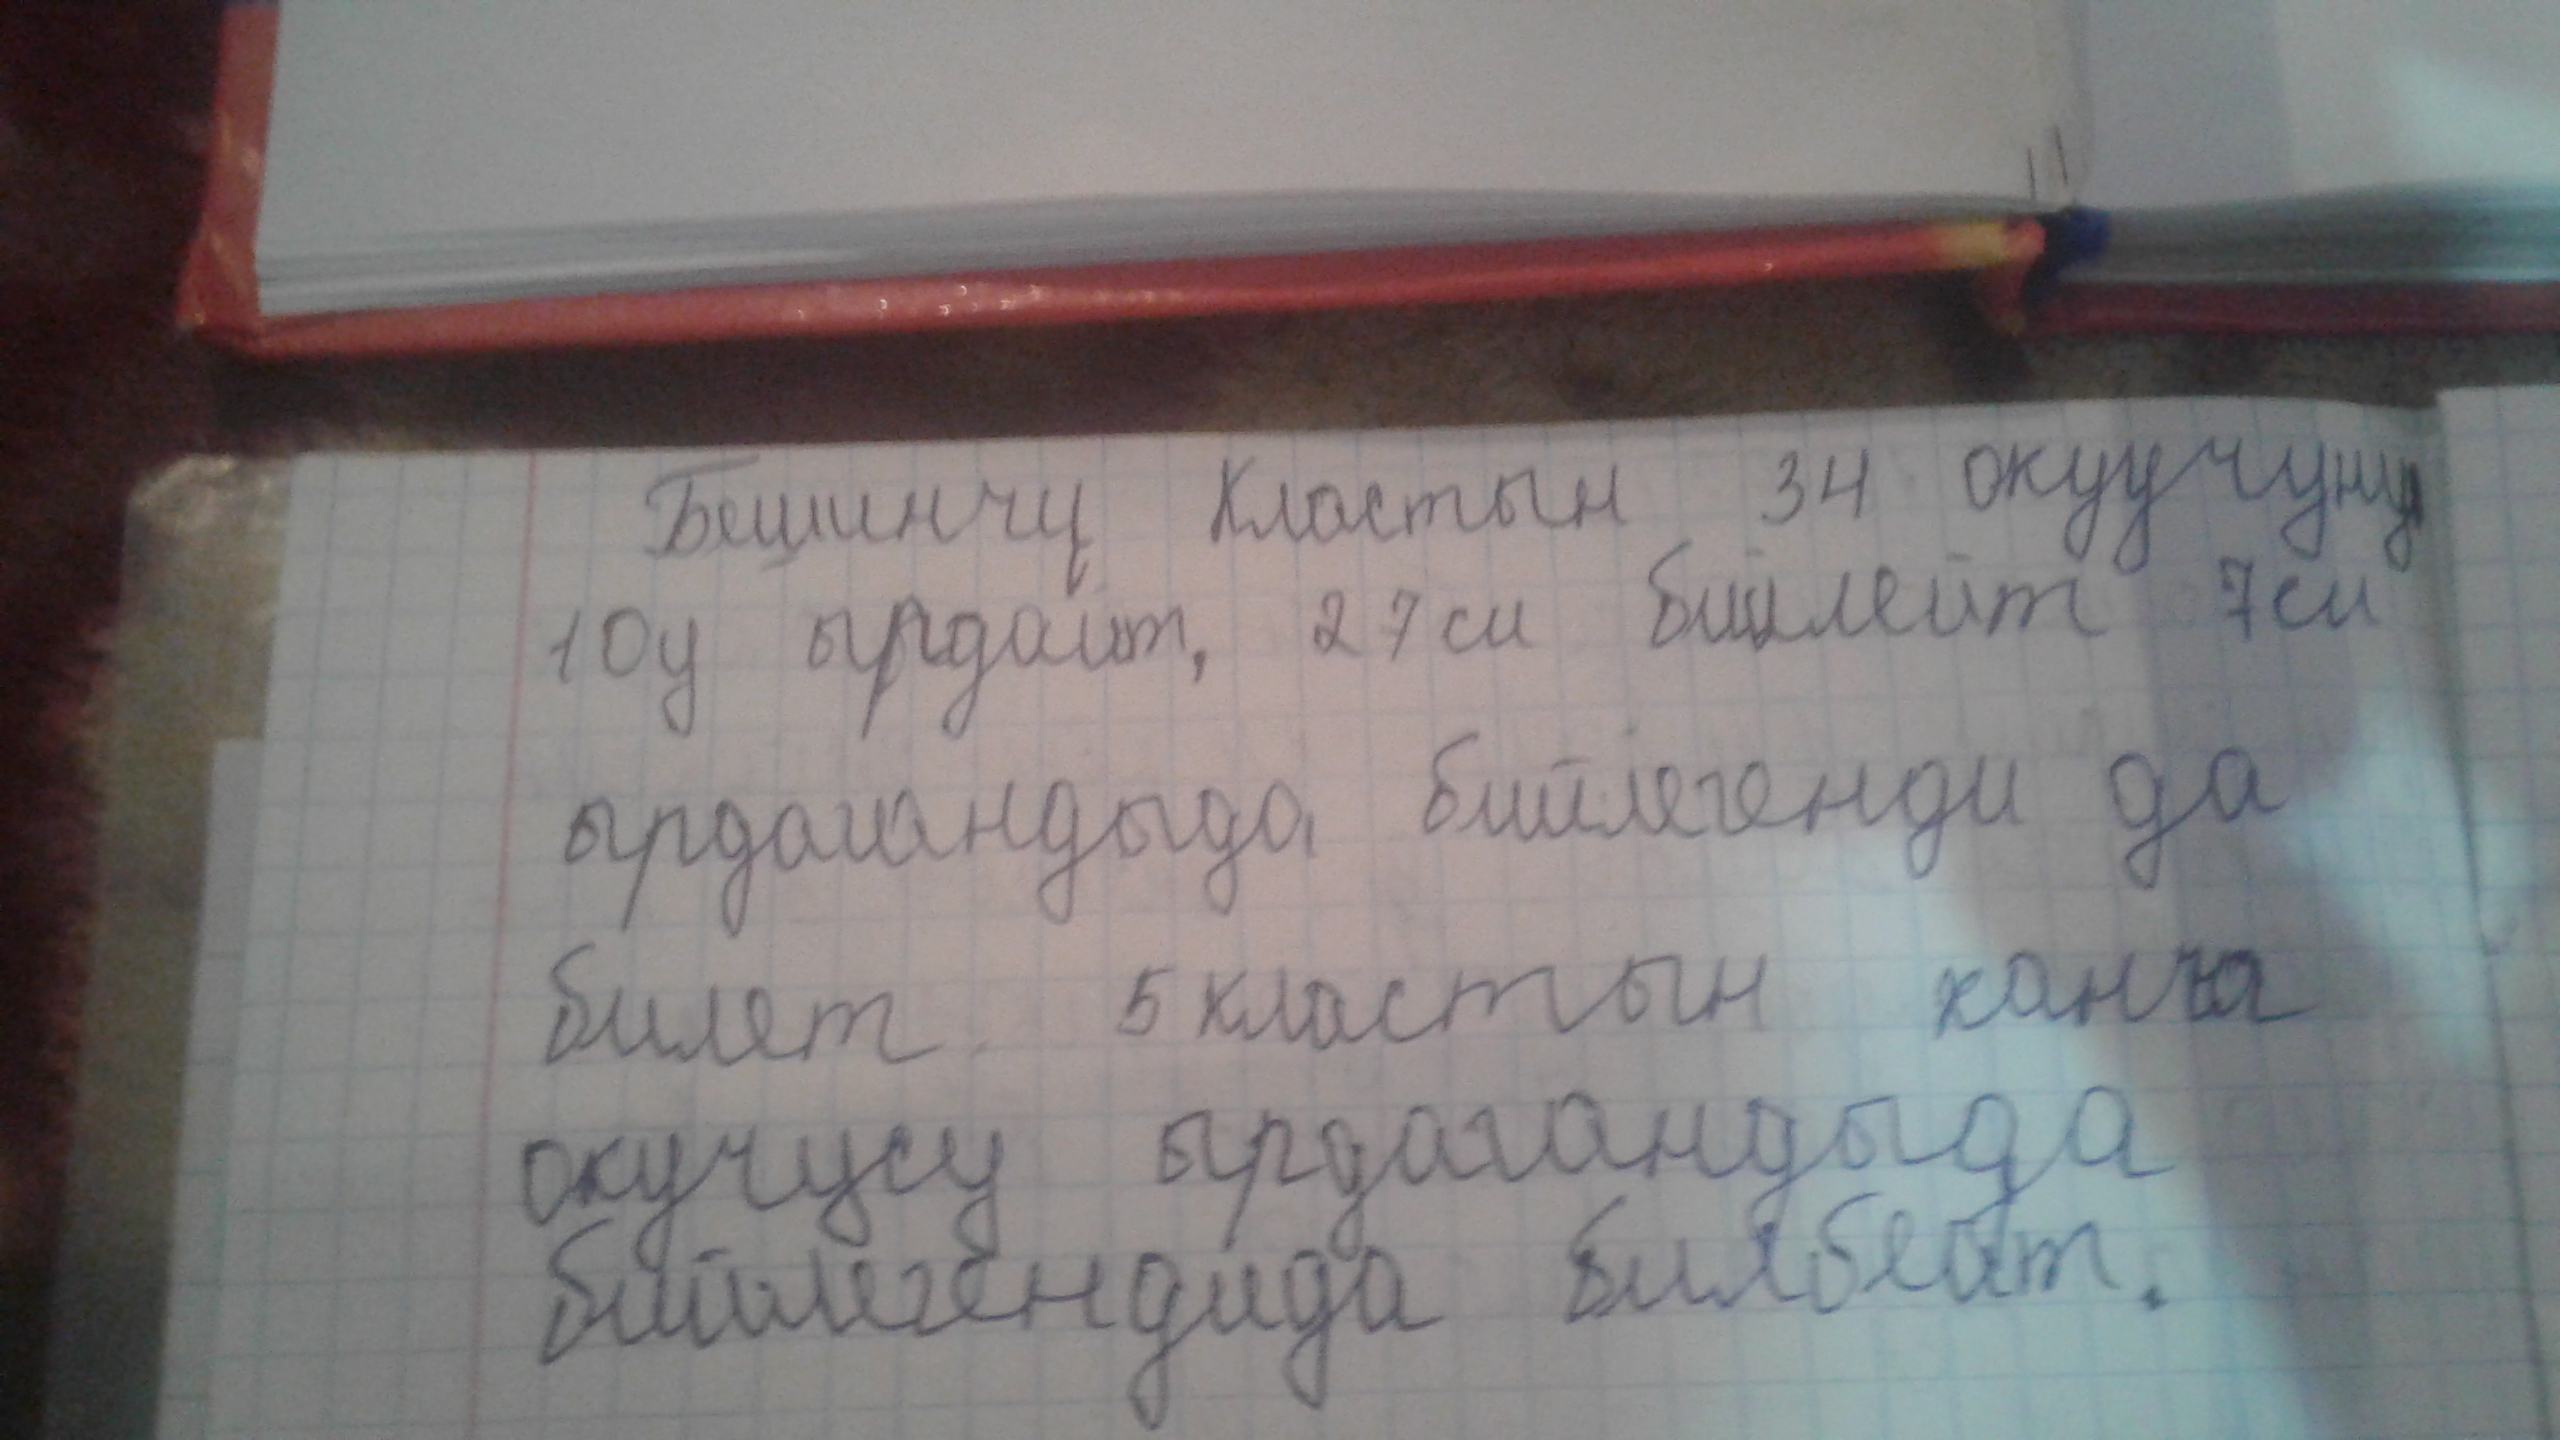 Бешинчи Кластын 34 окуучуну
10у ырдайт, 27си бийлейт 7си
ырдагандыда бийлегенди да
билет. 5кластын канча
окучусу ырдагандыда
бийлегендида билбейт.